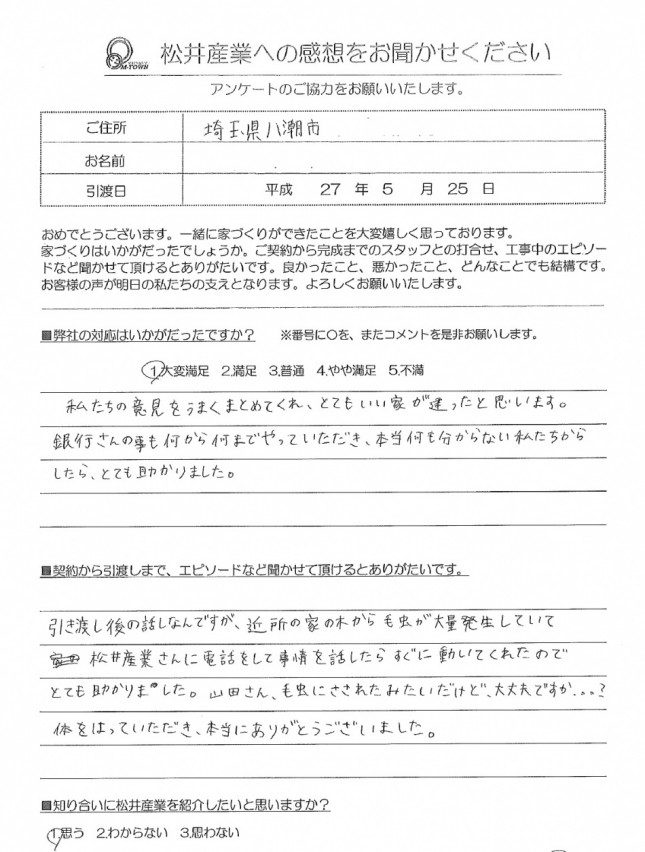 M-TOWN 松井産業への感想をお聞かせください
アンケートのご協力をお願いいたします。
ご住所 埼玉県八潮市
お名前
引渡日 平成 27 年 5 月 25 日
おめでとうございます。一緒に家づくりができたことを大変嬉しく思っております。
家づくりはいかがだったでしょうか。ご契約から完成までのスタッフとの打合せ、工事中のエピソー
ドなど聞かせて頂けるとありがたいです。良かったこと、悪かったこと、どんなことでも結構です。
お客様の声が明日の私たちの支えとなります。よろしくお願いいたします。
■弊社の対応はいかがだったですか？ ※番号に○を、またコメントを是非お願いします。
1,大変満足 2,満足 3,普通 4,やや満足 5,不満
私たちの意見をうまくまとめてくれ、とてもいい家が建ったと思います。
銀行さんの事も何から何までやっていただき、本当何も分からない私たちから
したら、とても助かりました。
■契約から引渡しまで、エピソードなど聞かせて頂けるとありがたいです。
引き渡し後の話しなんですが、近所の家の木から毛虫が大量発生していて
松井産業さんに電話をして事情を話したらすぐに動いてくれたので
とても助かりました。山田さん、毛虫にさされたみたいだけど、大丈夫ですか...?
体をはっていただき、本当にありがとうございました。
■知り合いに松井産業を紹介したいと思いますか？
1,思う 2,わからない 3,思わない